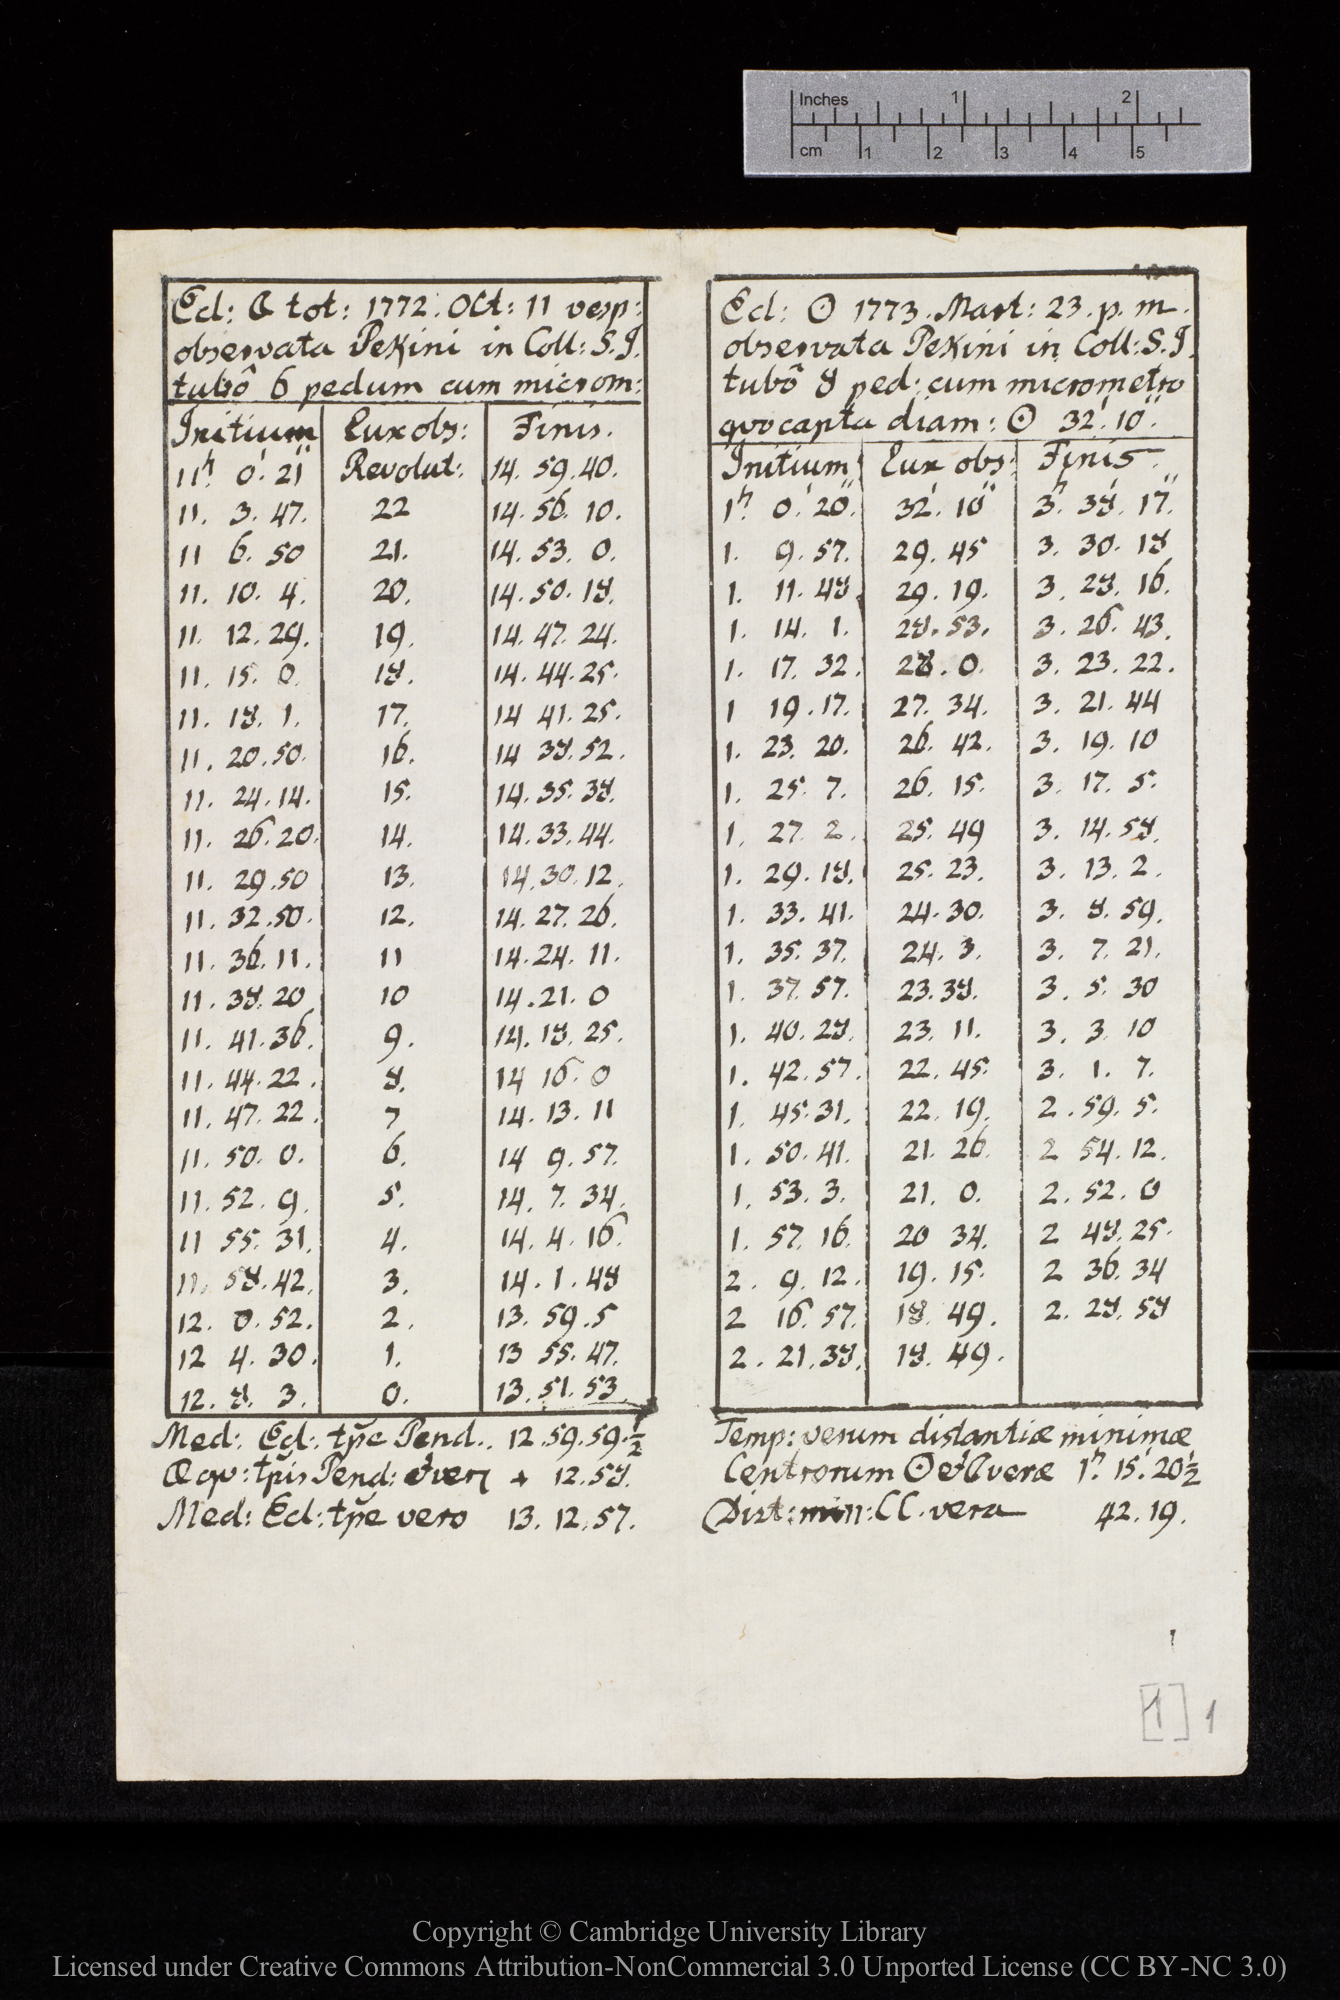 Inches 1 2
cm 1 2 3 4 5
Ecl: ☾ tot: 1772. Oct: 11 vesp:
observata Pekini in Coll: S.J.
tubô 6 pedum cum microm:
Initium Lux obs: Finis.
11h. 0'. 21" Revolut: 14. 59. 40.
11. 3. 47. 22 14. 56. 10.
11 6. 50 21. 14. 53. 0.
11. 10. 4. 20. 14. 50. 18.
11. 12. 29. 19. 14. 47. 24.
11. 15. 0. 18. 14. 44. 25.
11. 18. 1. 17. 14 41. 25.
11. 20. 50. 16. 14 38. 52.
11. 24. 14. 15. 14. 35. 38.
11. 26. 20. 14. 14. 33. 44.
11. 29. 50 13. 14. 30. 12.
11. 32. 50. 12. 14. 27. 26.
11. 36. 11. 11 14. 24. 11.
11. 38. 20 10 14. 21. 0
11. 41. 36. 9. 14. 18. 25.
11. 44. 22. 8. 14 16. 0
11. 47. 22. 7 14. 13. 11
11. 50. 0. 6. 14 9. 57.
11. 52. 9. 5. 14. 7. 34.
11 55. 31. 4. 14. 4. 16.
11. 58. 42. 3. 14. 1. 48
12. 0. 52. 2. 13. 59. 5
12 4. 30. 1. 13 55. 47.
12. 8. 3. 0. 13. 51. 53
Med: Ecl: tp̃e Pend.. 12. 59. 59. ½
Æqv: tp̃is Pend: et veri + 12. 58.
Med: Ecl: tp̃e vero 13. 12. 57.
Ecl: ☉ 1773. Mart: 23. p. m.
observata Pekini in Coll: S.J.
tubô 8 ped: cum micrometro
qvo capta diam: ☉ 32'. 10".
Initium Lux obs: Finis.
1h. 0'. 20". 32'. 10" 3h. 38'. 17".
1. 9. 57. 29. 45 3. 30. 18
1. 11. 48. 29. 19. 3. 28. 16.
1. 14. 1. 28. 53. 3. 26. 43.
1. 17. 32. 28. 0. 3. 23. 22.
1 19. 17. 27. 34. 3. 21. 44
1. 23. 20. 26. 42. 3. 19. 10
1. 25. 7. 26. 15. 3. 17. 5.
1. 27. 2. 25. 49 3. 14. 58.
1. 29. 18. 25. 23. 3. 13. 2.
1. 33. 41. 24. 30. 3. 8. 59.
1. 35. 37. 24. 3. 3. 7. 21.
1. 37. 57. 23. 38. 3. 5. 30
1. 40. 28. 23. 11. 3. 3. 10
1. 42. 57. 22. 45. 3. 1. 7.
1. 45. 31. 22. 19. 2. 59. 5.
1. 50. 41. 21. 26. 2 54. 12.
1. 53. 3. 21. 0. 2. 52. 0
1. 57. 16. 20 34. 2 48. 25.
2. 9. 12. 19. 15. 2 36. 34
2 16. 57. 18. 49. 2. 28. 58
2. 21. 38. 18. 49.
Temp: verum distantiæ minimæ
Centrorum ☉ et ☾ veræ 1h. 15'. 20"½
Dist: min: CC. vera 42. 19.
[1] 1
Copyright © Cambridge University Library
Licensed under Creative Commons Attribution-NonCommercial 3.0 Unported License (CC BY-NC 3.0)